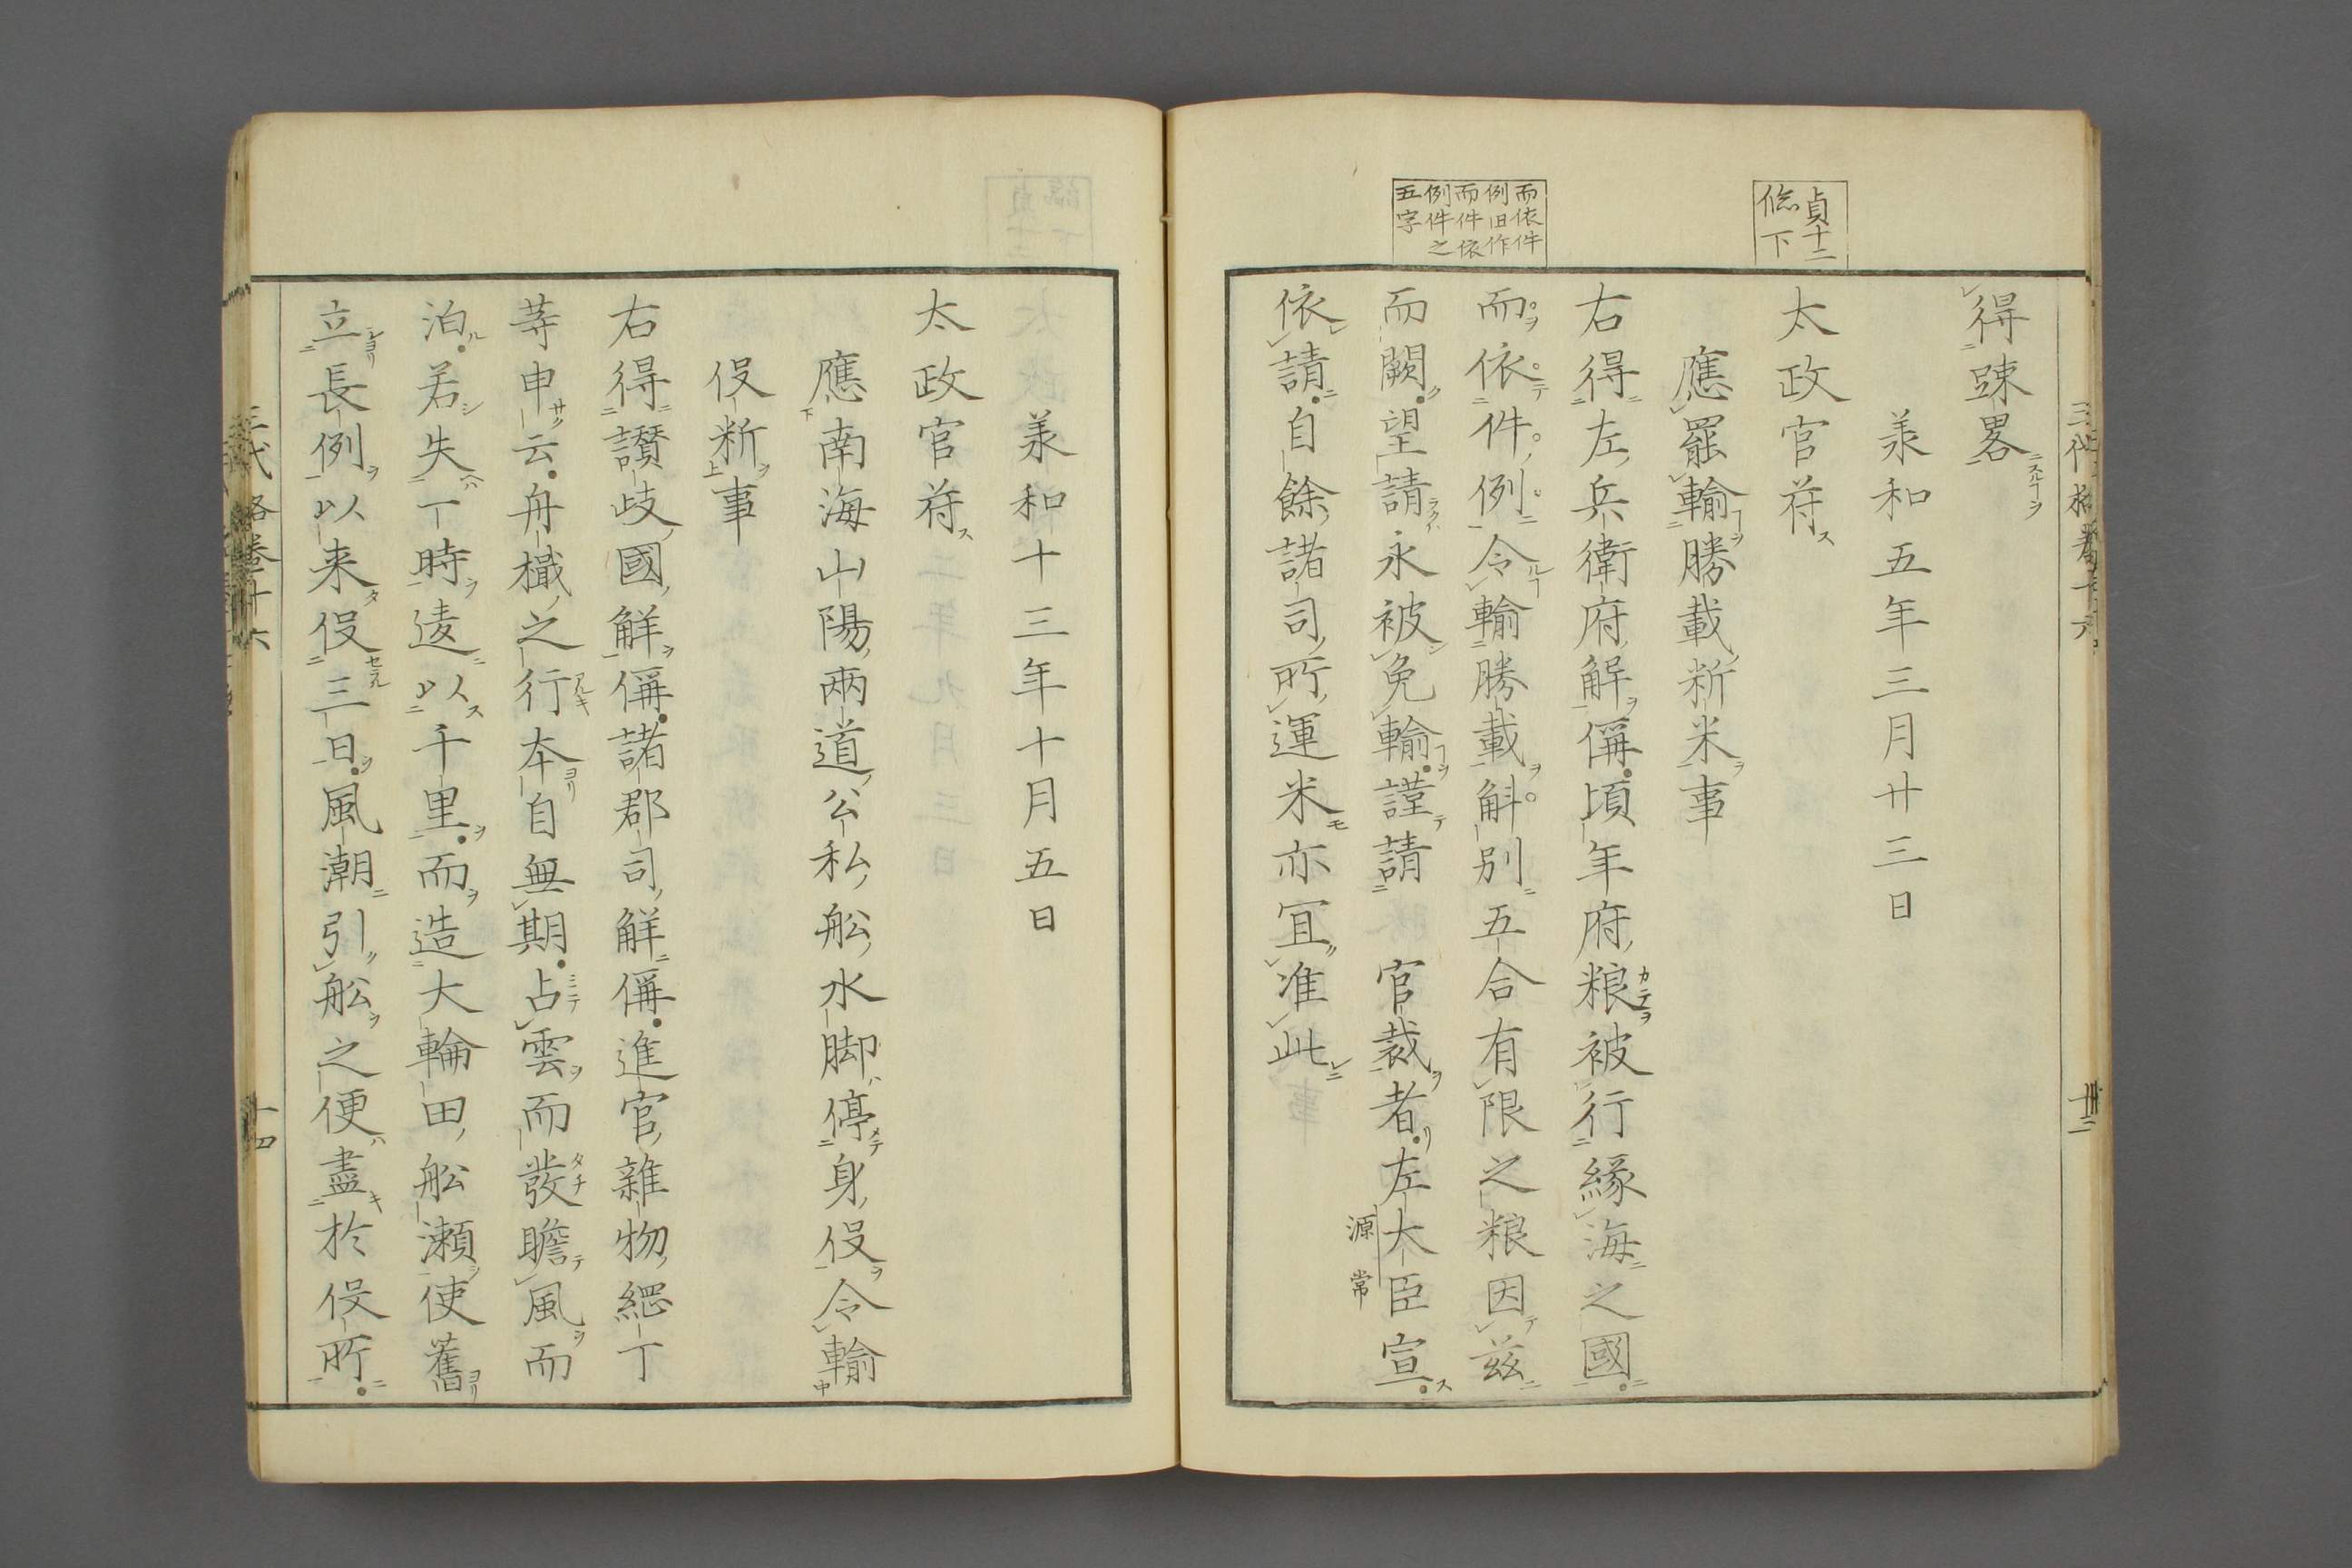 貞十二
倐下
而依件
例旧作
而件依
例件之
五字
得踈畧
承和五年三月廿三日
太政官苻
應罷輸勝載新米事
右得左兵衛府解偁頃年府粮被行緣海之國
而依件例令輸勝載斛別五合有限之粮因茲
而闕望請永被免輸謹請 官裁者左大臣宣
源常
依請自餘諸司所運米亦宜准此
承和十三年十月五日
太政官苻
應南海山陽兩道公私舩水脚停身役令輸
役新事
右得讚岐國解偁諸郡司解偁進官雜物綱丁
等申云舟檝之行本自無期占雲而發瞻風而
泊若失一時逺以千里而造大輪田舩瀬使舊
立長例以来役三日風潮引舩之便盡於役所
三代格卷十六